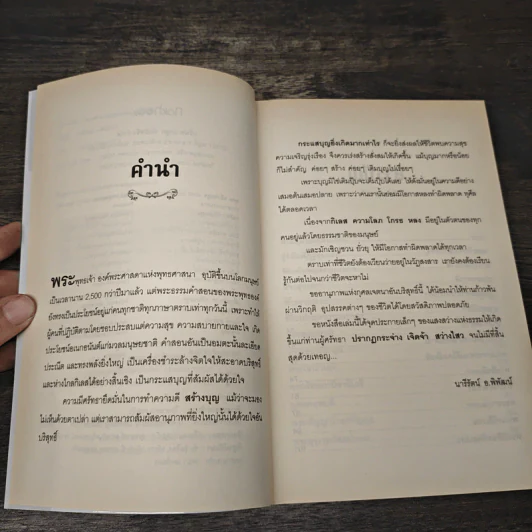 คำนำ
พระพุทธเจ้า องค์พระศาสดาแห่งพุทธศาสนา อุบัติขึ้นบนโลกมนุษย์
เป็นเวลานาน 2,500 กว่าปีมาแล้ว แต่พระธรรมคำสอนของพระพุทธองค์
ยังทรงเป็นประโยชน์อยู่แก่คนทุกชาติทุกภาษาตราบเท่าทุกวันนี้ เพราะทำให้
ผู้คนที่ปฏิบัติตามโดยชอบประสบแต่ความสุข ความสบายกายและใจ เกิด
ประโยชน์อเนกอนันต์แก่มวลมนุษยชาติ คำสอนอันเป็นอมตะนั้นละเอียด
ประณีต และทรงพลังยิ่งใหญ่ เป็นเครื่องชำระล้างจิตใจให้สะอาดบริสุทธิ์
และห่างไกลกิเลสได้อย่างสิ้นเชิง เป็นกระแสบุญที่สัมผัสได้ด้วยใจ
ความมีศรัทธายึดมั่นในการทำความดี สร้างบุญ แม้ว่าจะมอง
ไม่เห็นด้วยตาเปล่า แต่เราสามารถสัมผัสอานุภาพที่ยิ่งใหญ่นั้นได้ด้วยใจอัน
บริสุทธิ์
กระแสบุญยิ่งเกิดมากเท่าไร ก็จะยิ่งส่งผลให้ชีวิตพบความสุข
ความเจริญรุ่งเรือง จึงควรเร่งสร้างสั่งสมให้เกิดขึ้น แม้บุญมากหรือน้อย
ก็ไม่สำคัญ ค่อยๆ สร้าง ค่อยๆ เติมบุญไปเรื่อยๆ
เพราะบุญมิใช่เติมปุ๊บจะเต็มปั๊บได้เลย ให้ตั้งมั่นอยู่ในความดีอย่าง
เสมอต้นเสมอปลาย เพราะว่าคนเรานั้นย่อมมีโอกาสหลงทำผิดพลาด ทุศีล
ได้ตลอดเวลา
เนื่องจากกิเลส ความโลภ โกรธ หลง มีอยู่ในตัวตนของทุก
คนอยู่แล้วโดยธรรมชาติของมนุษย์
และมักเชิญชวน ยั่วยุ ให้มีโอกาสทำผิดพลาดได้ทุกเวลา
ตราบเท่าที่ชีวิตยังต้องเวียนว่ายอยู่ในวัฏสงสาร เรายังคงต้องเรียน
รู้กันต่อไปจนกว่าชีวิตจะหาไม่
ขออานุภาพแห่งกุศลเจตนาอันบริสุทธิ์นี้ ได้น้อมนำให้ท่านก้าวพ้น
ผ่านวิกฤติ อุปสรรคต่างๆ ของชีวิตได้โดยสวัสดิภาพปลอดภัย
ขอหนังสือเล่มนี้ได้จุดประกายเล็กๆ ของแสงสว่างแห่งธรรมให้เกิด
ขึ้นแก่ท่านผู้ศรัทธา ปรากฏกระจ่าง เจิดจ้า สว่างไสว จนไม่มีที่สิ้น
สุดด้วยเทอญ...
นารีรัตน์ อ.พิพัฒน์